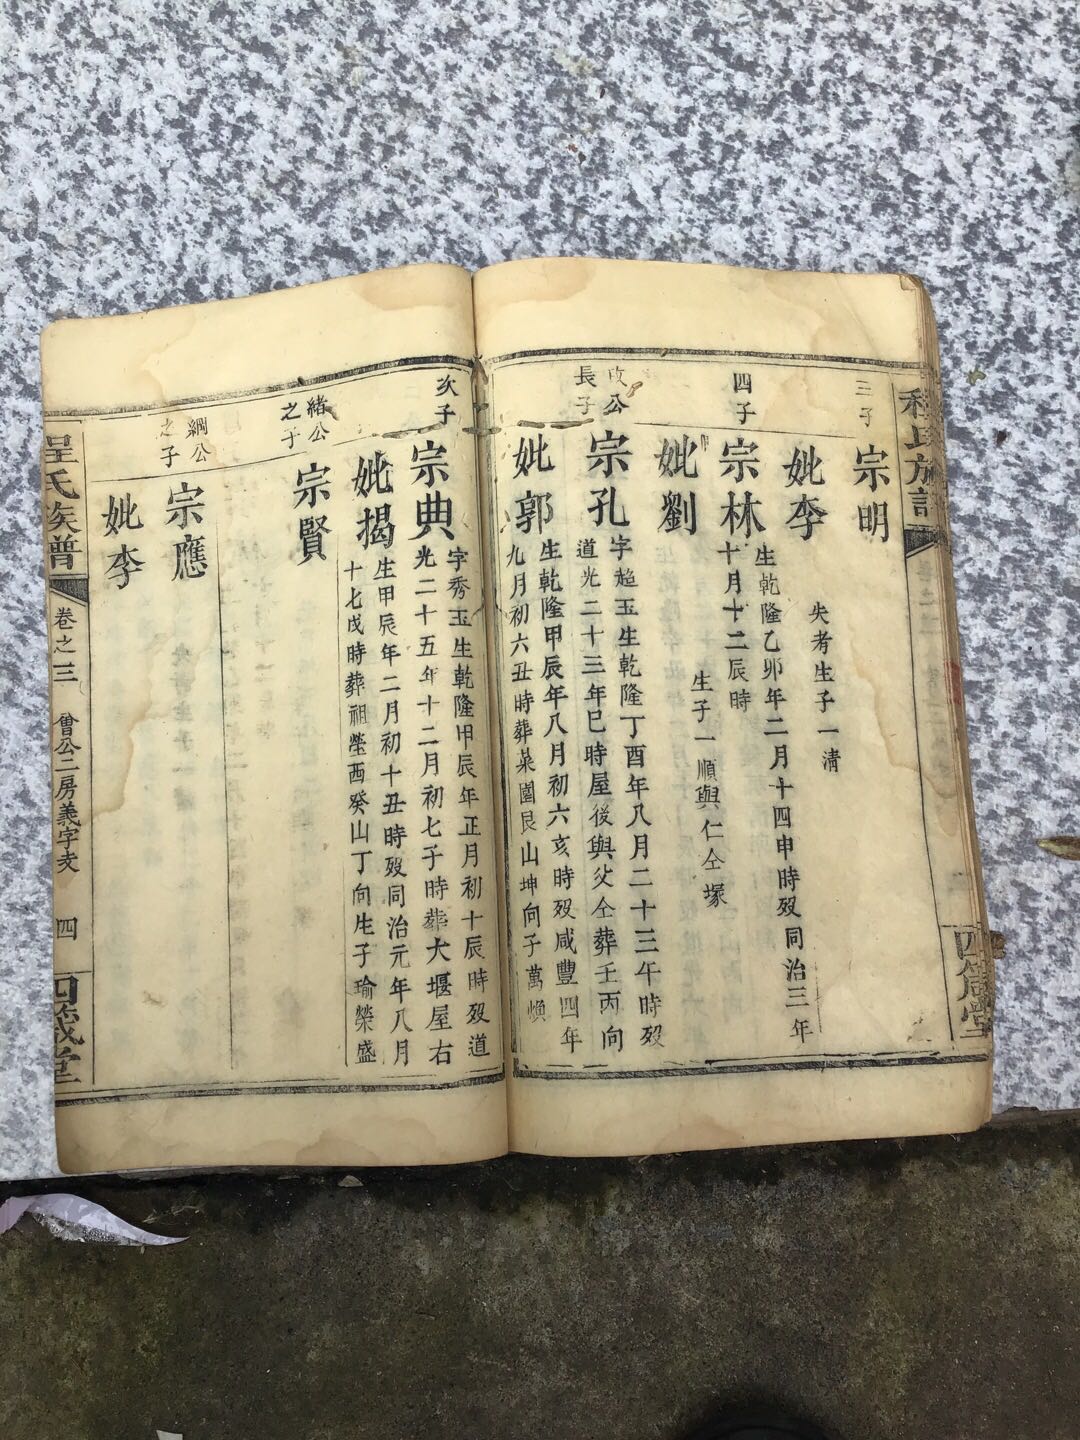 程氏族譜
四箴堂
三子
宗明
妣李
失考生子一清
四子
宗林
生乾隆乙卯年二月十四申時歿同治三年
十月十二辰時
妣劉
生子一順與仁仝塚
政公
長子
宗孔
字超玉生乾隆丁酉年八月二十三午時歿
道光二十三年巳時屋後與父仝葬壬丙向
妣郭
生乾隆甲辰年八月初六亥時歿咸豐四年
九月初六丑時葬菜園艮山坤向子萬煥
次子
宗典
字秀玉生乾隆甲辰年正月初十辰時歿道
光二十五年十二月初七子時葬大堰屋右
妣揭
生甲辰年二月初十丑時歿同治元年八月
十七戌時葬祖塋酉癸山丁向生子瑜榮盛
緒公
之子
宗賢
綱公
之子
宗應
妣李
程氏族譜
卷之三
曾公二房義字支
四
四箴堂